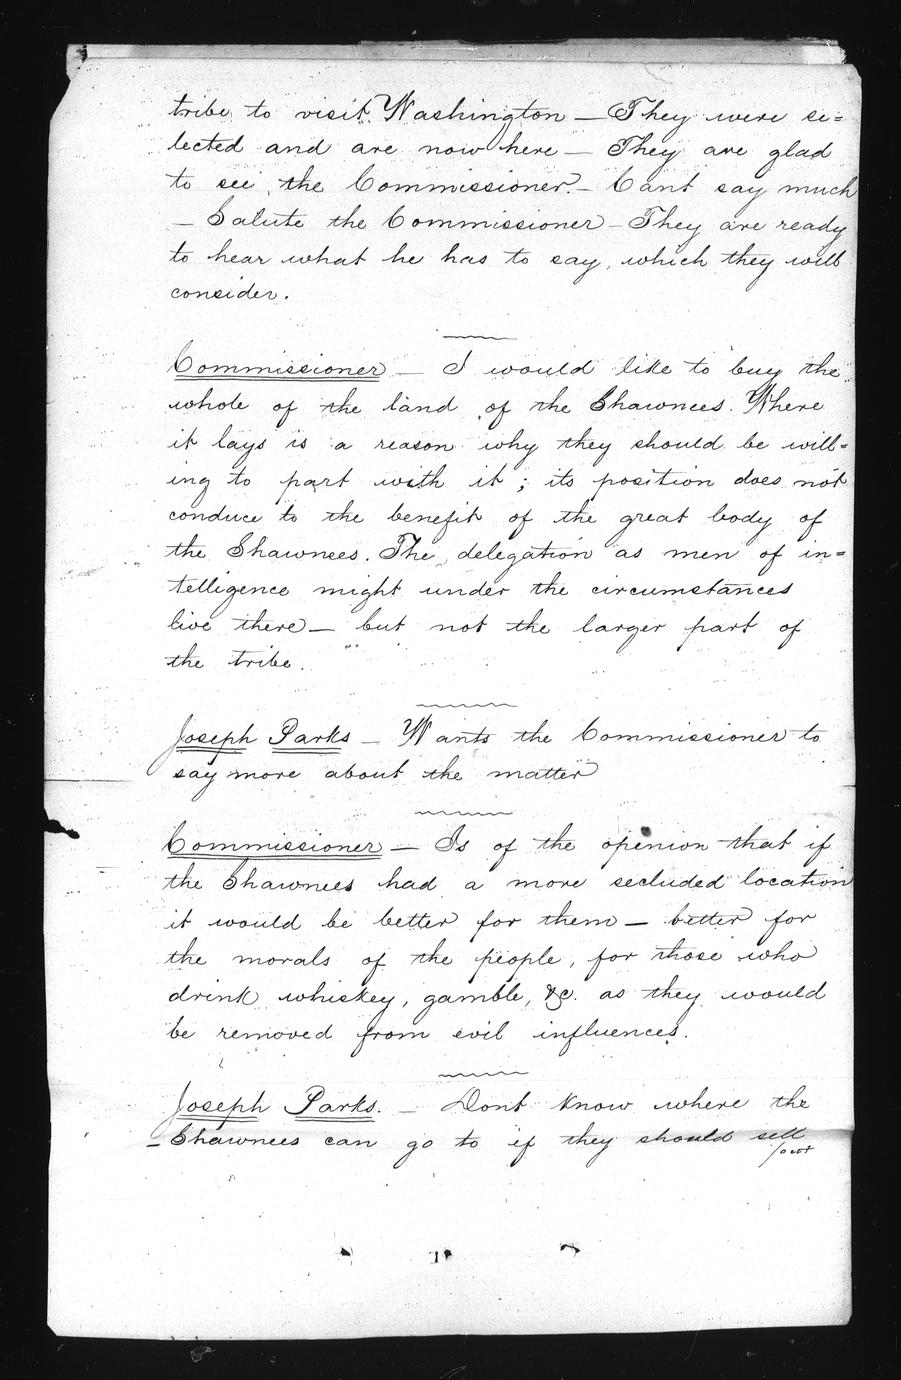 tribe to visit Washington — They were se=
lected and are now here — They are glad
to see the Commissioner. — Cant say much
— Salute the Commissioner — They are ready
to hear what he has to say, which they will
consider.
Commissioner — I would like to buy the
whole of the land of the Shawnees. Where
it lays is a reason why they should be will=
ing to part with it; its position does not
conduce to the benefit of the great body of
the Shawnees. The delegation as men of in=
telligence might under the circumstances
live there — but not the larger part of
the tribe.
Joseph Parks — Wants the Commissioner to
say more about the matter
Commissioner — Is of the openion that if
the Shawnees had a more secluded location
it would be better for them — better for
the morals of the people, for those who
drink whiskey, gamble, &c. as they would
be removed from evil influences.
Joseph Parks. — Dont know where the
— Shawnees can go to if they should sell
/out